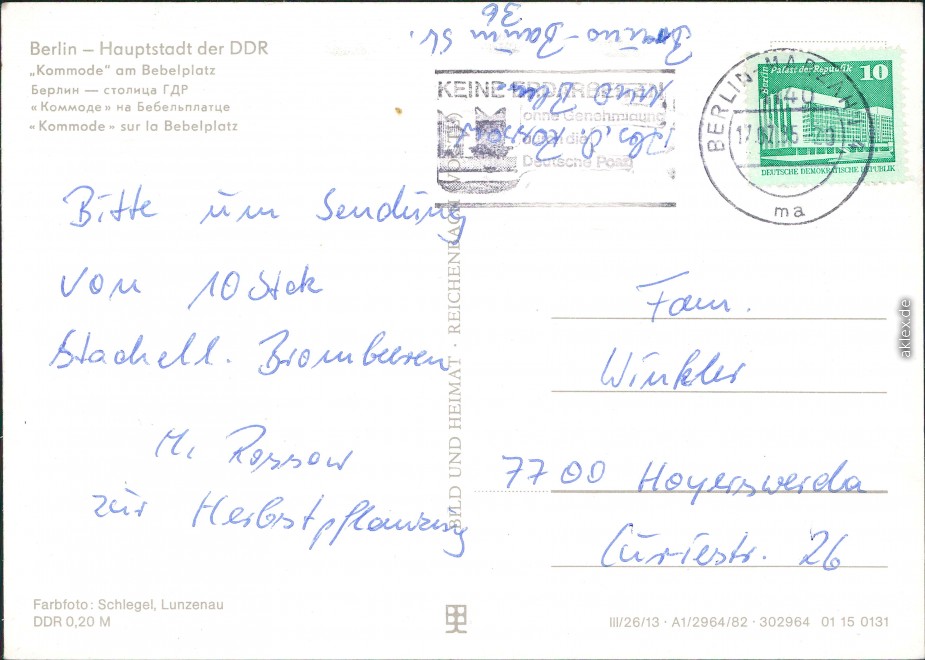 Berlin – Hauptstadt der DDR
„Kommode“ am Bebelplatz
Берлин — столица ГДР
«Коммоде» на Бебельплатце
«Kommode» sur la Bebelplatz
Bitte um Sendung
von 10 Stck
Stachell. Brombeeren
M. Rossow
zur Herbstpflanzung
Farbfoto: Schlegel, Lunzenau
DDR 0,20 M
BILD UND HEIMAT · REICHENBACH
Bruno-Baum Str.
36
KEINE
ohne Genehmigung
Deutsche Post
BERLIN-MARZAHN 1
1140
17.07.85-20
ma
berlin Palast der Republik 10
DEUTSCHE DEMOKRATISCHE REPUBLIK
Fam.
Winkler
7700 Hoyerswerda
Curiestr. 26
III/26/13 · A1/2964/82 · 302964 01 15 0131
aklex.de